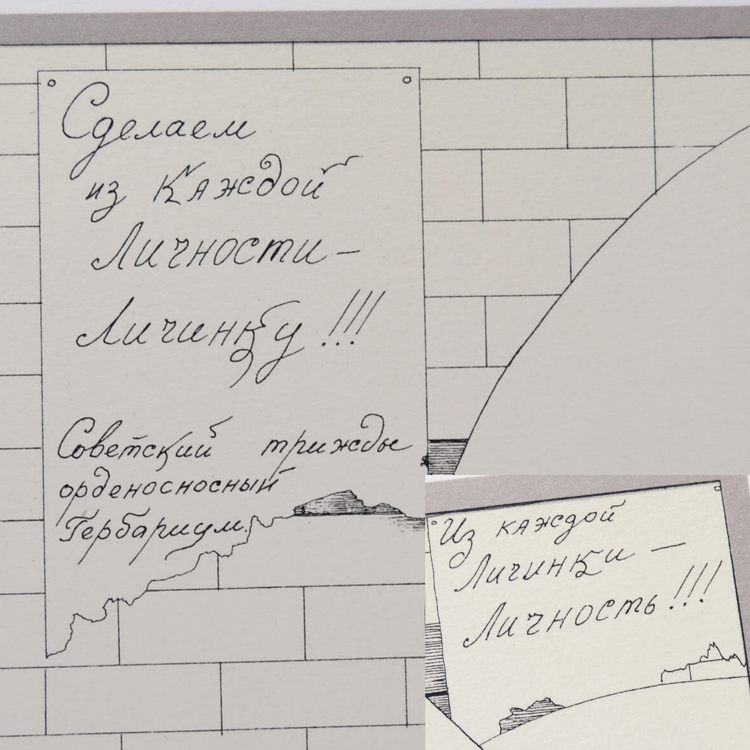 Сделаем
из каждой
Личности —
Личинку!!!
Советский трижды
орденосносный
Гербариум.
Из каждой
Личинки —
Личность!!!